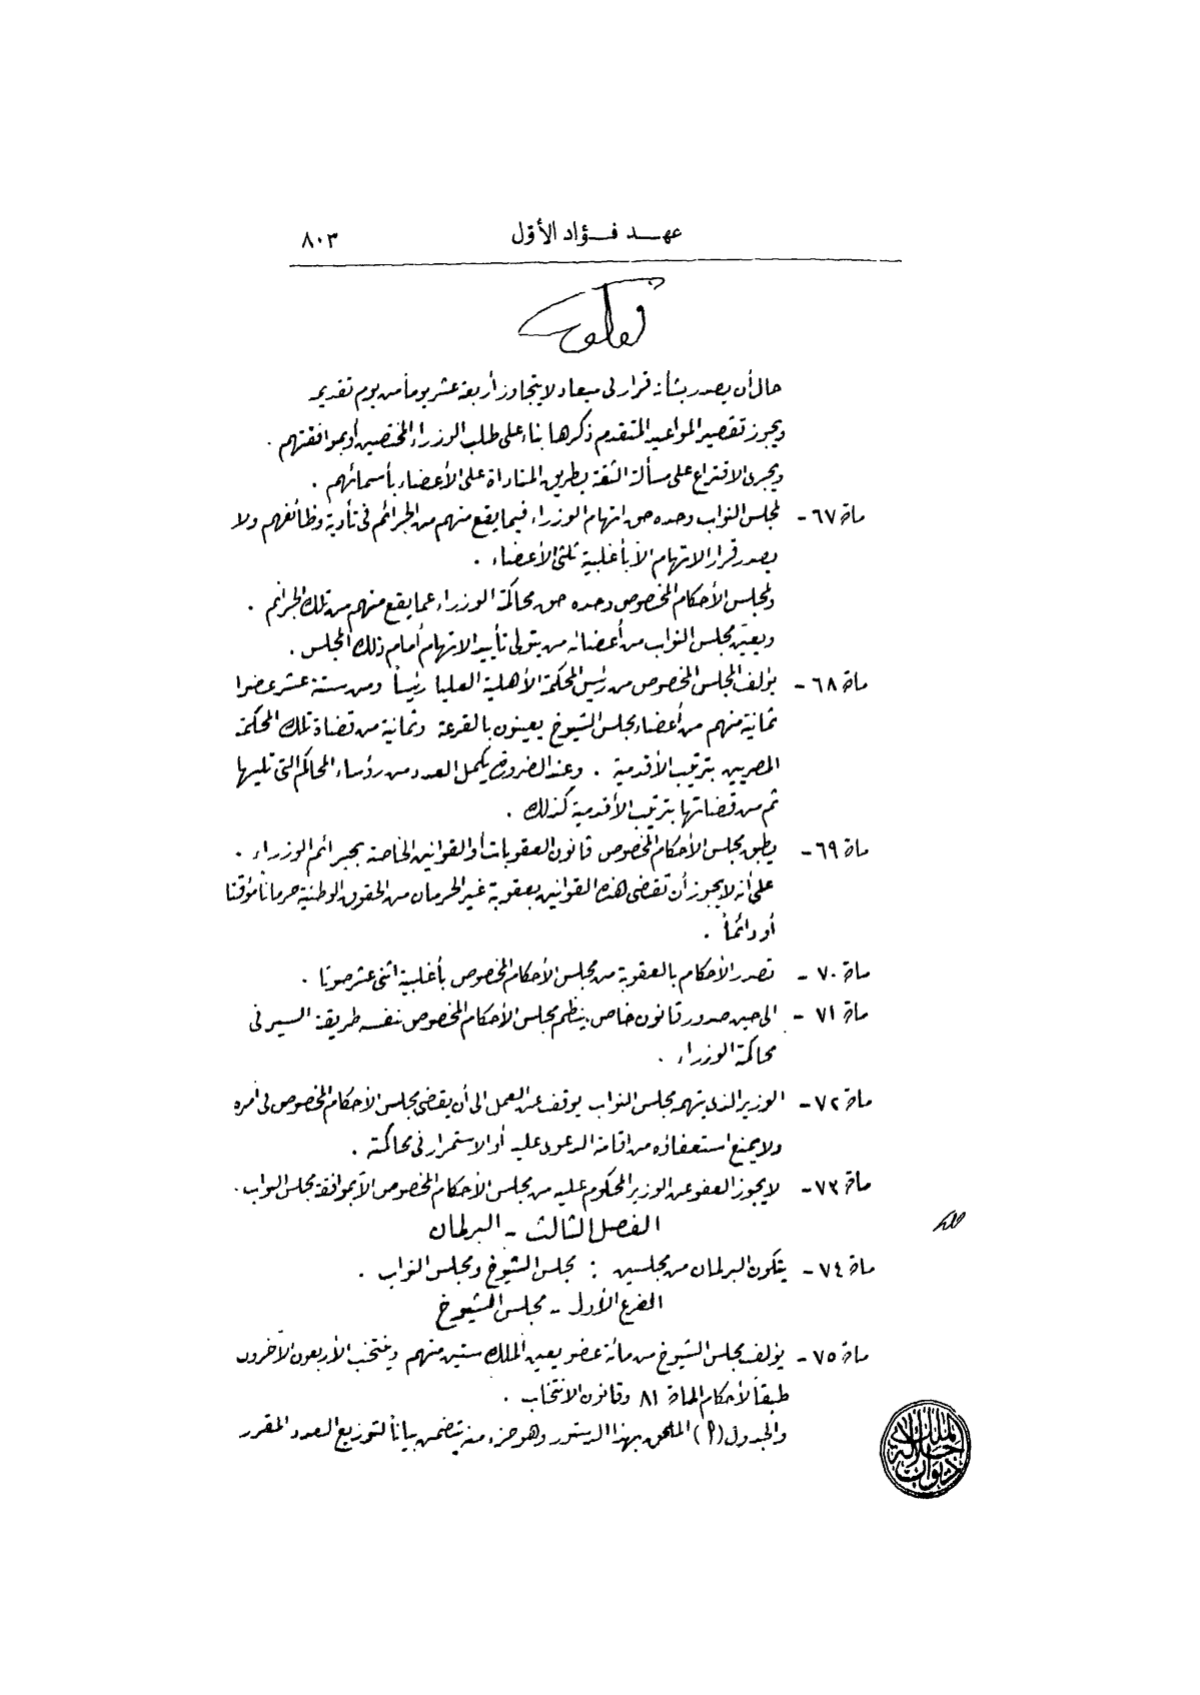 عهد فؤاد الأوّل ٨٠٣
حال أن يصدر بشأنه قرار فى ميعاد لا يتجاوز أربعة عشر يوماً من يوم تقديمه
ويجوز تقصير المواعيد المتقدم ذكرها بناء على طلب الوزراء المختصين أو بموافقتهم .
ويجرى الاقتراع على مسألة الثقة بطريق المناداة على الأعضاء بأسمائهم .
مادة ٦٧ - لمجلس النواب وحده حق اتهام الوزراء فيما يقع منهم من الجرائم فى تأدية وظائفهم ولا
يصدر قرار الاتهام الا بأغلبية ثلثى الأعضاء .
ولمجلس الأحكام المخصوص وحده حق محاكمة الوزراء عما يقع منهم من تلك الجرائم .
ويعيّن مجلس النواب من أعضائه من يتولى تأييد الاتهام أمام ذلك المجلس .
مادة ٦٨ - يؤلف المجلس المخصوص من رئيس المحكمة الأهلية العليا رئيساً ومن ستة عشر عضوا
ثمانية منهم من أعضاء مجلس الشيوخ يعينون بالقرعة وثمانية من قضاة تلك المحكمة
المصريين بترتيب الأقدمية . وعند الضرورة يكمل العدد من رؤساء المحاكم التى تليها
ثم من قضاتها بترتيب الأقدمية كذلك .
مادة ٦٩ - يطبق مجلس الأحكام المخصوص قانون العقوبات أو القوانين الخاصة بجرائم الوزراء .
على أنه لا يجوز أن تقضى هذه القوانين بعقوبة غير الحرمان من الحقوق الوطنية حرماناً مؤقتا
أو دائماً .
مادة ٧٠ - تصدر الأحكام بالعقوبة من مجلس الأحكام المخصوص بأغلبية اثنى عشر صوتا .
مادة ٧١ - الى حين صدور قانون خاص ينظم مجلس الأحكام المخصوص بنفسه طريقة السير فى
محاكمة الوزراء .
مادة ٧٢ - الوزير الذى يتهمه مجلس النواب يوقف عن العمل الى أن يقضى مجلس الأحكام المخصوص فى أمره
ولا يمنع استعفاؤه من اقامة الدعوى عليه أو الاستمرار فى محاكمته .
مادة ٧٣ - لا يجوز العفو عن الوزير المحكوم عليه من مجلس الأحكام المخصوص الا بموافقة مجلس النواب .
الفصل الثالث - البرلمان
مادة ٧٤ - يتكون البرلمان من مجلسين : مجلس الشيوخ ومجلس النواب .
الفرع الأول - مجلس الشيوخ
مادة ٧٥ - يؤلف مجلس الشيوخ من مائة عضو يعين الملك ستين منهم وينتخب الأربعون الآخرون
طبقاً لأحكام المادة ٨١ وقانون الانتخاب .
والجدول (أ) الملحق بهذا الدستور وهو جزء منه يتضمن بياناً لتوزيع العدد المقرر
ديوان جلالة الملك